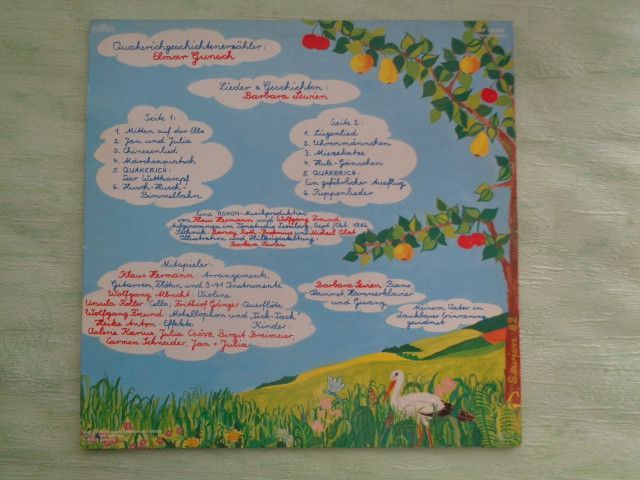 Quakerichgeschichtenerzähler:
Elmar Gunsch
Lieder + Geschichten:
Barbara Seuren
Seite 1:
1. Mitten auf der Elle
2. Jan und Julia
3. Chinesenlied
4. Märchenquatsch
5. QUAKERICH:
Der Wettkampf
6. Husch-Husch-
Bimmelbahn
Seite 2:
1. Liegenlied
2. Uhrenmännchen
3. Miezekatze
4. Holz-Gänschen
5. QUAKERICH:
Ein gefährlicher Ausflug
6. Puppenlieder
Eine ROXON-Musikproduktion
von Klaus Hermann und Wolfgang Freund
Aufgenommen im Tonstudio Sept./Okt. 1982
Technik: und Michael Obst
Illustration und Hüllengestaltung:
Barbara Seuren
Mitspieler:
Klaus Hermann: Arrangements,
Gitarren, Flöten und 3-41 Instrumente
Wolfgang Albrecht: Violine
Ursula Koller: Cello, Frithjof Gänger: Querflöte
Wolfgang Freund: Metallophon und "Tick-Tack"
Heike Anton: Effekte Kinder:
Valerie Karius, Julia Birgit Breimeier,
Carmen Schneider, Jan + Julia
Barbara Seuren: Piano,
Clarinet, Hammerklavier
und Gesang
Meinem Vater in
dankbarer Erinnerung
gewidmet
82